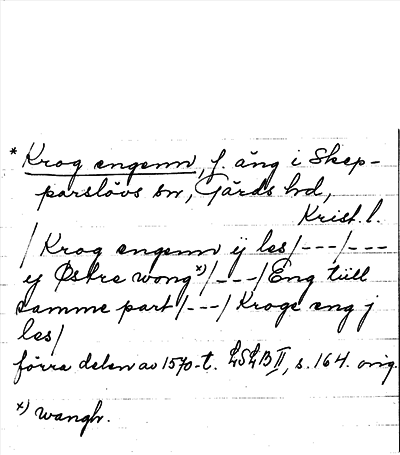 * Krog engenn, f. äng i Skep-
parslövs sn, Gärds hd,
Krist. l.
/ Krog engenn ij les /---/---
ij Østre wong x) /---/ Eng tiill
samme part /---/ Kroge eng j
les /
förra delen av 1570-t. LSLB II, s. 164. orig.
x) wangh.